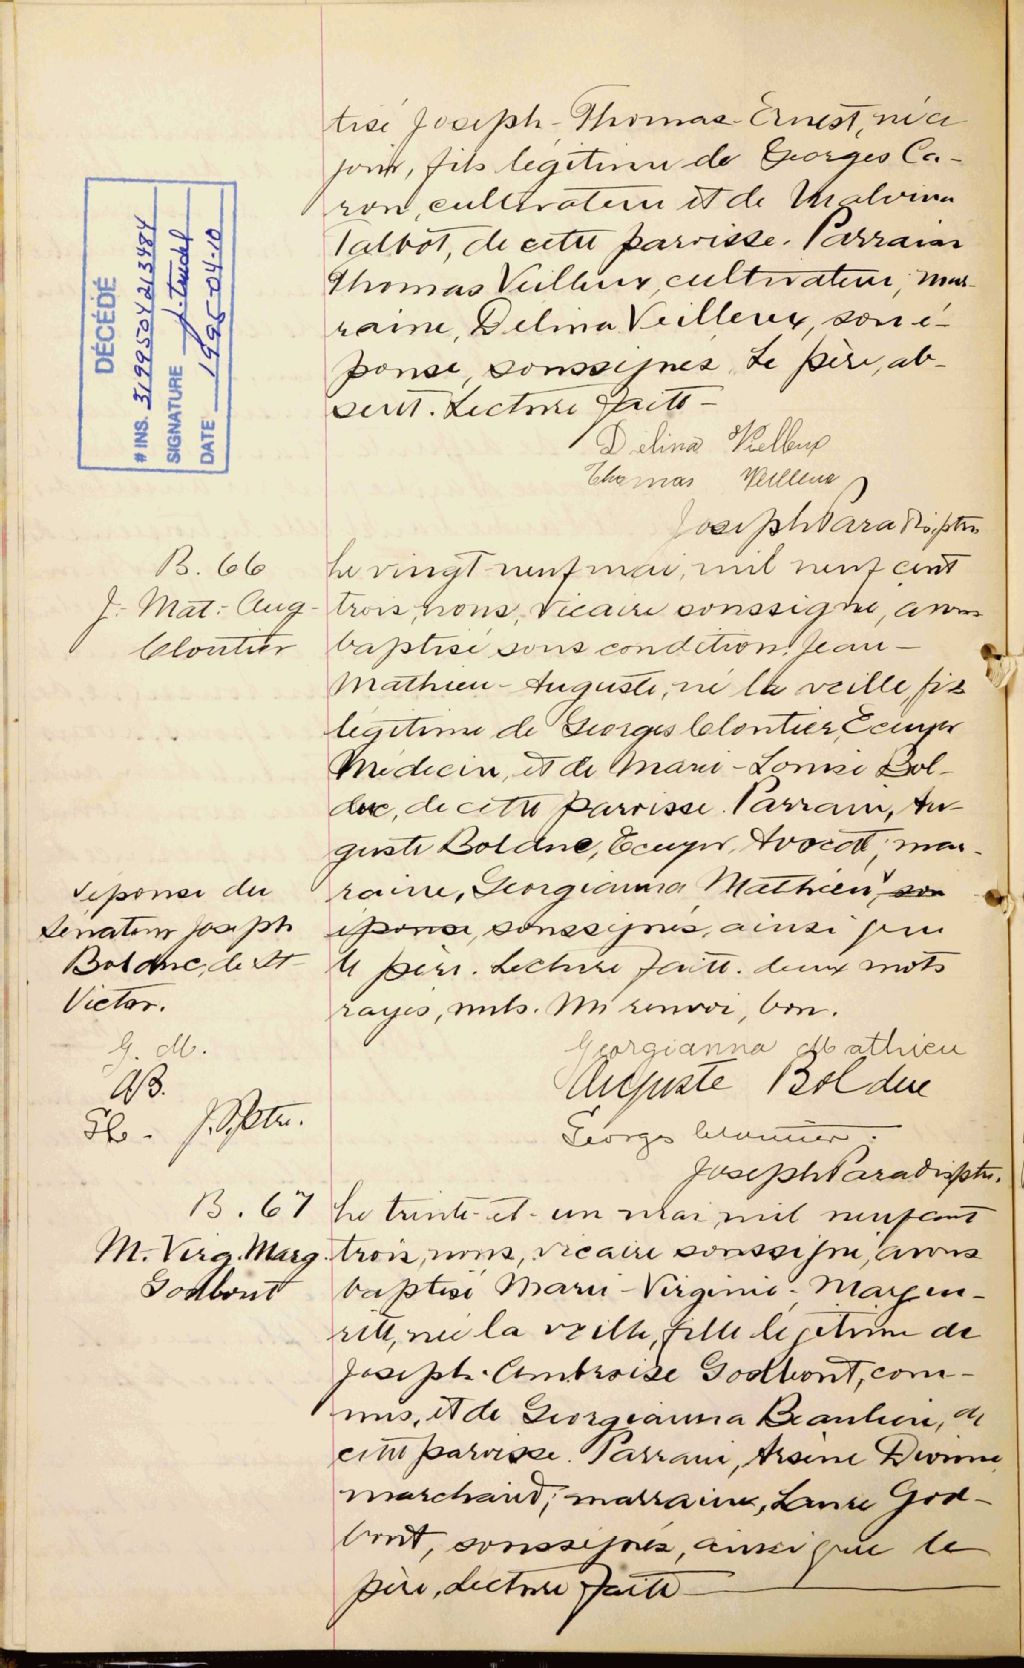 tisé Joseph-Thomas-Ernest, né ce
jour, fils légitime de Georges Ca-
ron, cultivateur et de Malvina
Talbot, de cette paroisse. Parrain
Thomas Veilleux, cultivateur, mar-
raine, Délina Veilleux, son é-
pouse, soussignés. Le père, ab-
sent. Lecture faite-
Délina Vielleux
Thomas Veilleux
Joseph Paradis, ptre
DÉCÉDÉ
# INS. 3199504213484
SIGNATURE J. Trudel
DATE 1995-04-10
B. 66
J.- Mat.- Aug-
Cloutier
Le vingt-neuf mai, mil neuf cent
trois, nous, vicaire soussigné, avons
baptisé sous condition Jean-
Mathieu-Auguste, né la veille, fils
légitime de Georges Cloutier, Ecuyer
Médecin, et de Marie-Louise Bol-
duc, de cette paroisse. Parrain, Au-
guste Bolduc, Ecuyer, Avocat; mar-
raine, Georgianna Mathieu, son
épouse, soussignés, ainsi que
le père. Lecture faite. deux mots
rayés, nuls. Un renvoi, bon.
v épouse du
Sénateur Joseph
Bolduc, de St
Victor.
G. M.
A B.
G C -
J. P, ptre.
Georgianna Mathieu
Auguste Bolduc
Georges Cloutier.
Joseph Paradis, ptre.
B. 67
M. Virg. Marg.
Godbout
Le trente-et-un mai, mil neuf cent
trois, nous, vicaire soussigné, avons
baptisé Marie-Virginie-Margue-
rite, née la veille, fille légitime de
Joseph-Ambroise Godbout, com-
mis, et de Georgianna Beaulieu, de
cette paroisse. Parrain, Arsène Dionne
marchand; marraine, Laure God-
bout, soussignés, ainsi que le
père, Lecture faite